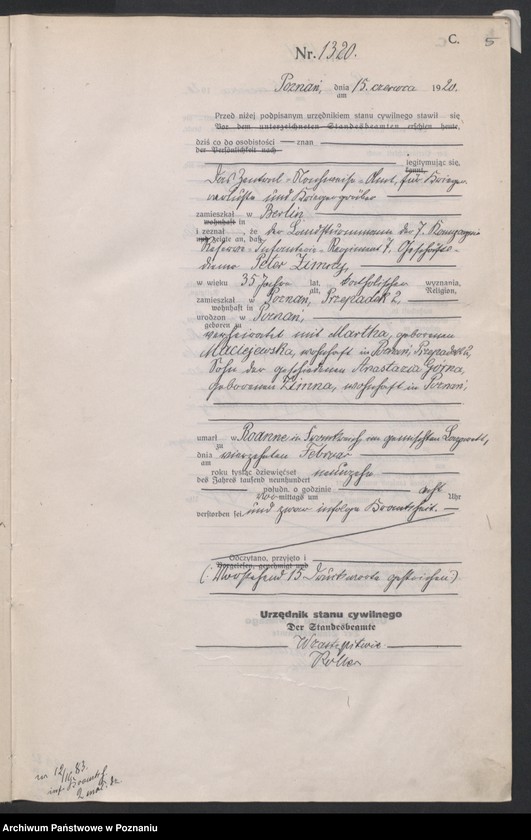 C.
5
Nr. 1320.
Poznań, dnia 15. czerwca 1920.
am
Przed niżej podpisanym urzędnikiem stanu cywilnego stawił się
Vor dem unterzeichneten Standesbeamten erschien heute,
dziś co do osobistości znan
der Persönlichkeit nach
legitymując się,
kannt,
Das Zentral-Nachweise-Amt, für Krieger-
verluste und Kriegergräber
zamieszkał w Berlin
wohnhaft in
i zeznał, że der Landsturmmann der 7. Kompagnie
und zeigte an, daß
Reserve-Infanterie-Regiment 7, Geschäfts-
diener Peter
w wieku 35 Jahre lat, katholischer wyznania,
alt, Religion,
zamieszkał w Poznań, Przepadek 2,
wohnhaft in
urodzon w Poznań,
geboren zu
verheiratet mit Martha, geborenen
Maciejewska, wohnhaft in Poznań, Przepadek 2,
Sohn der geschiedenen Anastazia Górna,
geborenen Zimna, wohnhaft in Poznań,
umarł w Roanne in Frankreich im gemischten Lazarett,
zu
dnia vierzehnten Februar
am
roku tysiąc dziewięćset neunzehn
des Jahres tausend neunhundert
połudn. o godzinie acht
Vor-mittags um Uhr
verstorben sei, und zwar infolge Krankheit.
Odczytano, przyjęto i
Vorgelesen, genehmigt und
(: Vorstehend 15 Druckworte gestrichen)
Urzędnik stanu cywilnego
Der Standesbeamte
W zastępstwie
nr 12
83.
Archiwum Państwowe w Poznaniu